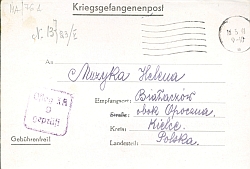 Kriegsgefangenenpost
An
Muzyka Helena
Empfangsort: Białaczow
Straße: obok Opoczna
Kreis: Kielce
Landesteil: Polska
Gebührenfrei
geprüft